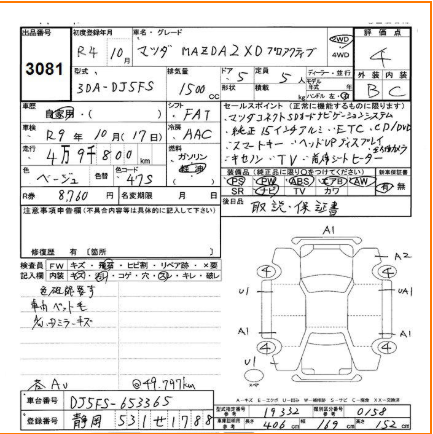 出品番号 初度登録年月 車名・グレード 評価点
3081 R4年 10月 マツダ MAZDA2 XD プロアクティブ 2WD 4WD 4
型式 排気量 ドア 定員 ディーラー・並行 外装 内装
3DA-DJ5FS 1500cc 形状 5 積載 5人 kg ハンドル 左・右 B C
車歴 自家用・( ) シフト FAT セールスポイント (正常に機能するものに限ります)
車検 R9年 10月(17日) 冷房 AAC
マツダコネクトSDナビゲーションシステム
・純正15インチアルミ・ETC・CD/DVD
走行 4万9千800km 燃料 ガソリン 軽油
スマートキー・ヘッドUPディスプレイ
キセノン・TV・前席シートヒーター
色 ベージュ 色替 色コード 47S
装備品 (純正品に限り○をつけてください) 新車保証書
PS PW ABS エアB AW 有・無
SR ナビ TV カワ
R券 8,760円 名変期限 月 日
後日品 取説・保証書
注意事項申告欄(不具合内容等は具体的に記入して下さい)
修復歴 有 (箇所 )
検査員 FW キズ・飛石・ヒビ割・リペア跡・×要
記入欄 内装 キズ・汚れ・コゲ・穴・スレ・キレ・破レ
車内ペット毛
A1
A2
4 4
U1 UA1
A1 A1
4 4
U1
スペア
@49.797km
車台番号 DJ5FS-653365
登録番号 静岡 531 せ 1788
型式指定番号 19332 類別区分番号 0158
長さ 406cm 幅 169cm 高さ 152cm